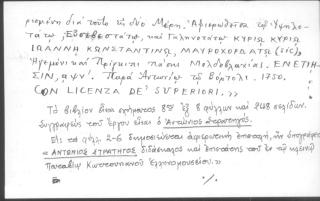 ρισμένη διὰ τοῦτο εἰς δύο Μέρη. Ἀφιερωθεῖσα τῷ Ὑψηλο-
τάτῳ, Εὐσεβεστάτῳ, καὶ Γαληνοτάτῳ ΚΥΡΙῼ ΚΥΡΙῼ
ΙΩΑΝΝΗ ΚΩΝΣΤΑΝΤΙΝῼ, ΜΑΥΡΟΧΟΡΔΑΤῼ (sic),
Ἡγεμόνι καὶ Πρίγκιπι πάσης Μολδοβλαχίας. ΕΝΕΤΗ-
ΣΙΝ, αψν'. Παρὰ Ἀντωνίῳ τῷ Βόρτολι. 1750.
CON LICENZA DE' SUPERIORI. »
Τὸ βιβλίον εἶναι σχήματος 8ου ἐξ 8 φύλλων καὶ 248 σελίδων.
Συγγραφεὺς τοῦ ἔργου εἶναι ὁ Ἀντώνιος Στρατηγός.
Εἰς τὰ φύλ. 2-6 δημοσιεύεται ἀφιερωτικὴ ἐπιστολή, τὴν ὑπογράφει
« ΑΝΤΩΝΙΟΣ ΣΤΡΑΤΗΓΟΣ διδάσκαλος καὶ ἐπιστάτης τοῦ ἐν τῷ κλεινῷ
Παταβίῳ Κωττουνιανοῦ Ἑλληνομουσείου. »
·/.